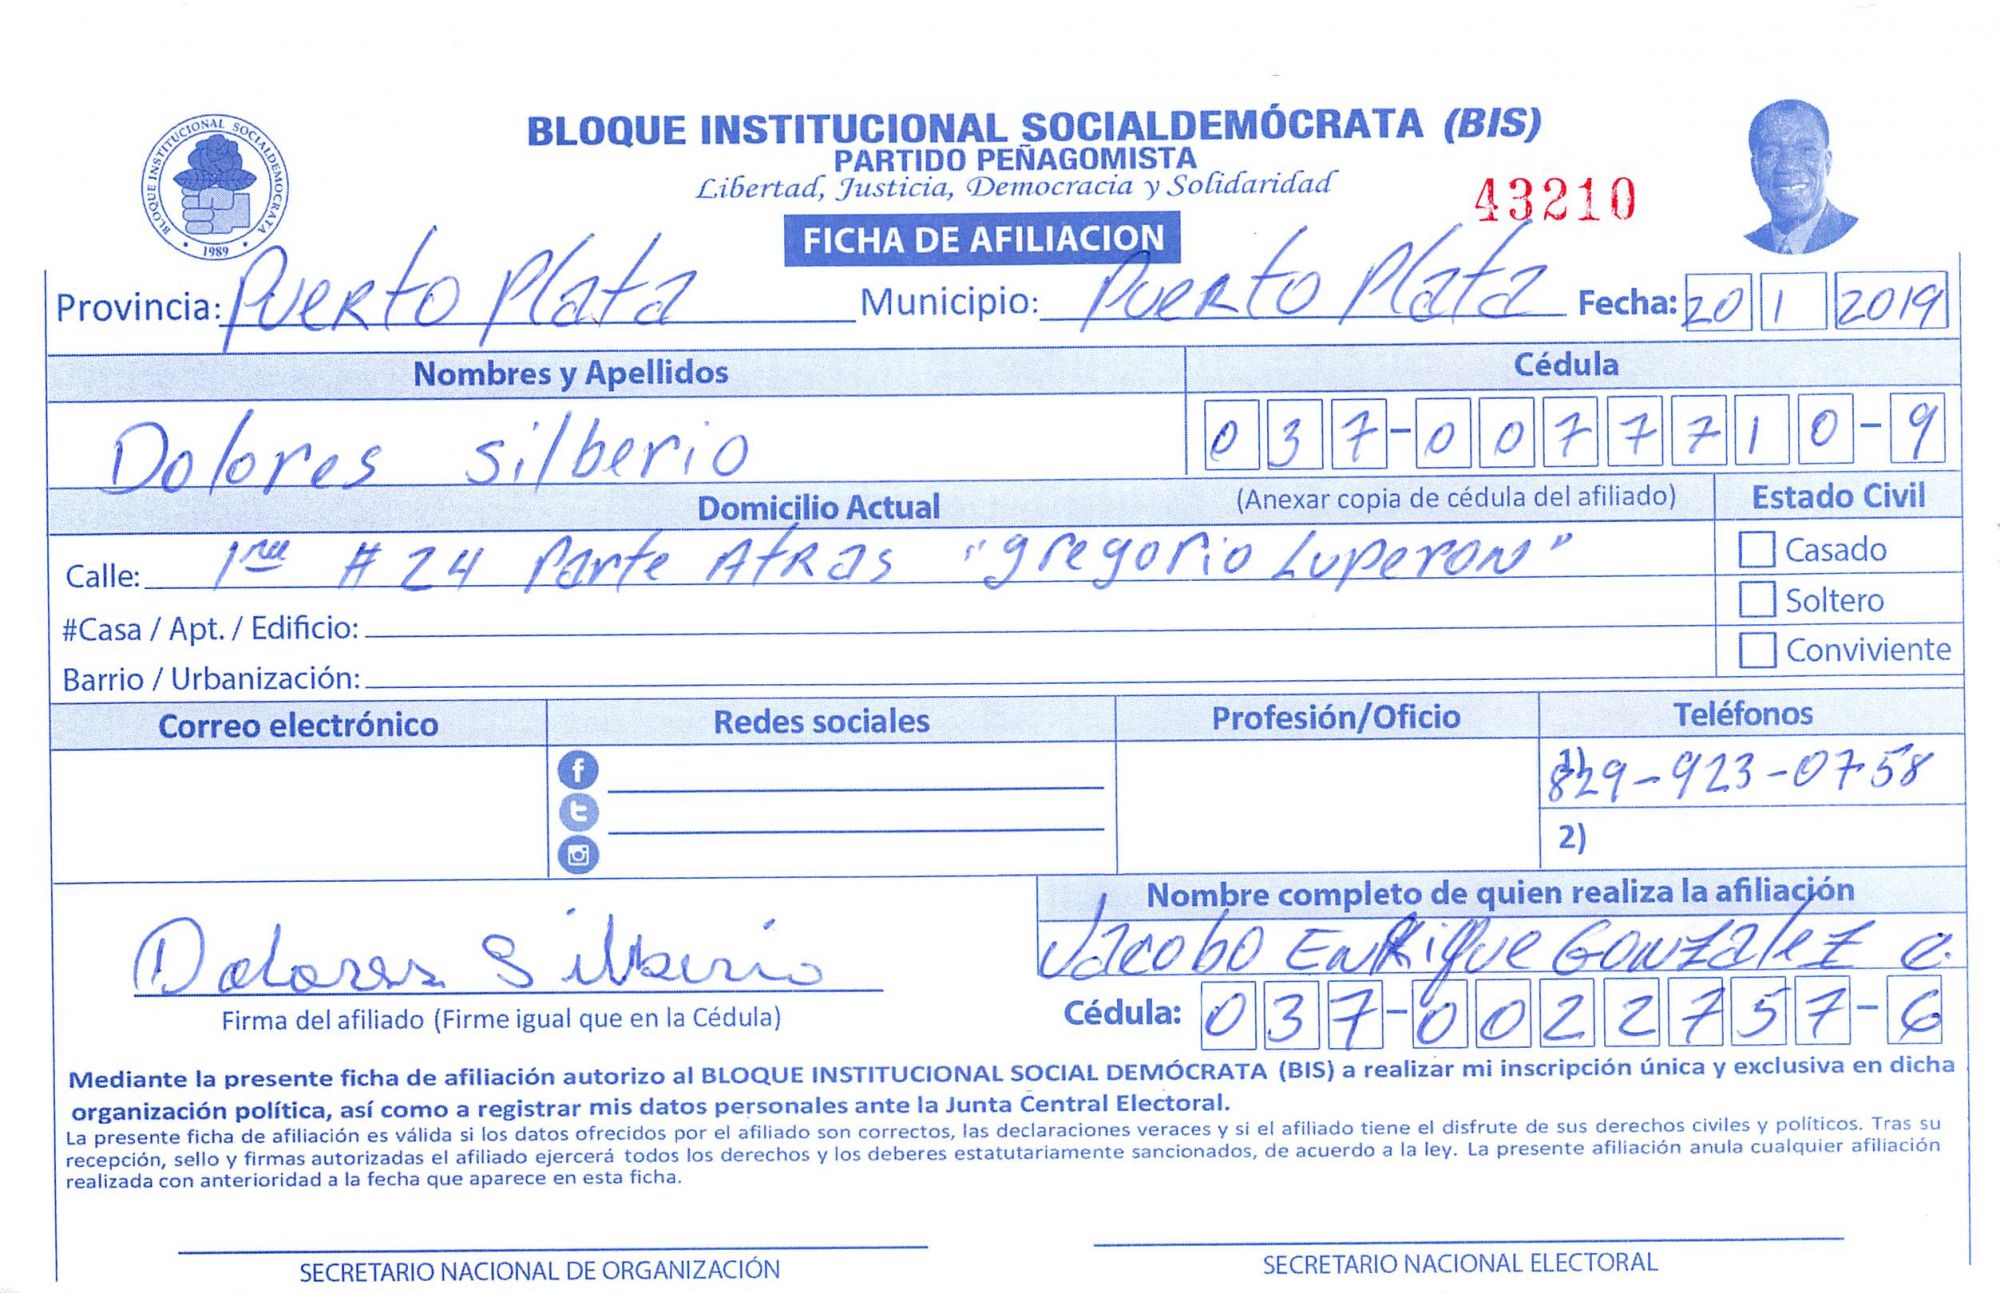 BLOQUE INSTITUCIONAL SOCIALDEMOCRATA
1989
BLOQUE INSTITUCIONAL SOCIALDEMÓCRATA (BIS)
PARTIDO PEÑAGOMISTA
Libertad, Justicia, Democracia y Solidaridad
43210
FICHA DE AFILIACION
Provincia: Puerto Plata Municipio: Puerto Plata Fecha: 20 1 2019
Nombres y Apellidos Cédula
Dolores Silberio 037-0077710-9
Domicilio Actual (Anexar copia de cédula del afiliado) Estado Civil
Calle: 1ra # 24 Parte Atras "gregorio Luperon" Casado
#Casa / Apt. / Edificio: Soltero
Barrio / Urbanización: Conviviente
Correo electrónico Redes sociales Profesión/Oficio Teléfonos
1) 829-923-0758
2)
Nombre completo de quien realiza la afiliación
Dolores Silberio Jacobo Enrique Gonzalez C.
Firma del afiliado (Firme igual que en la Cédula) Cédula: 037-0022757-6
Mediante la presente ficha de afiliación autorizo al BLOQUE INSTITUCIONAL SOCIAL DEMÓCRATA (BIS) a realizar mi inscripción única y exclusiva en dicha
organización política, así como a registrar mis datos personales ante la Junta Central Electoral.
La presente ficha de afiliación es válida si los datos ofrecidos por el afiliado son correctos, las declaraciones veraces y si el afiliado tiene el disfrute de sus derechos civiles y políticos. Tras su
recepción, sello y firmas autorizadas el afiliado ejercerá todos los derechos y los deberes estatutariamente sancionados, de acuerdo a la ley. La presente afiliación anula cualquier afiliación
realizada con anterioridad a la fecha que aparece en esta ficha.
SECRETARIO NACIONAL DE ORGANIZACIÓN SECRETARIO NACIONAL ELECTORAL